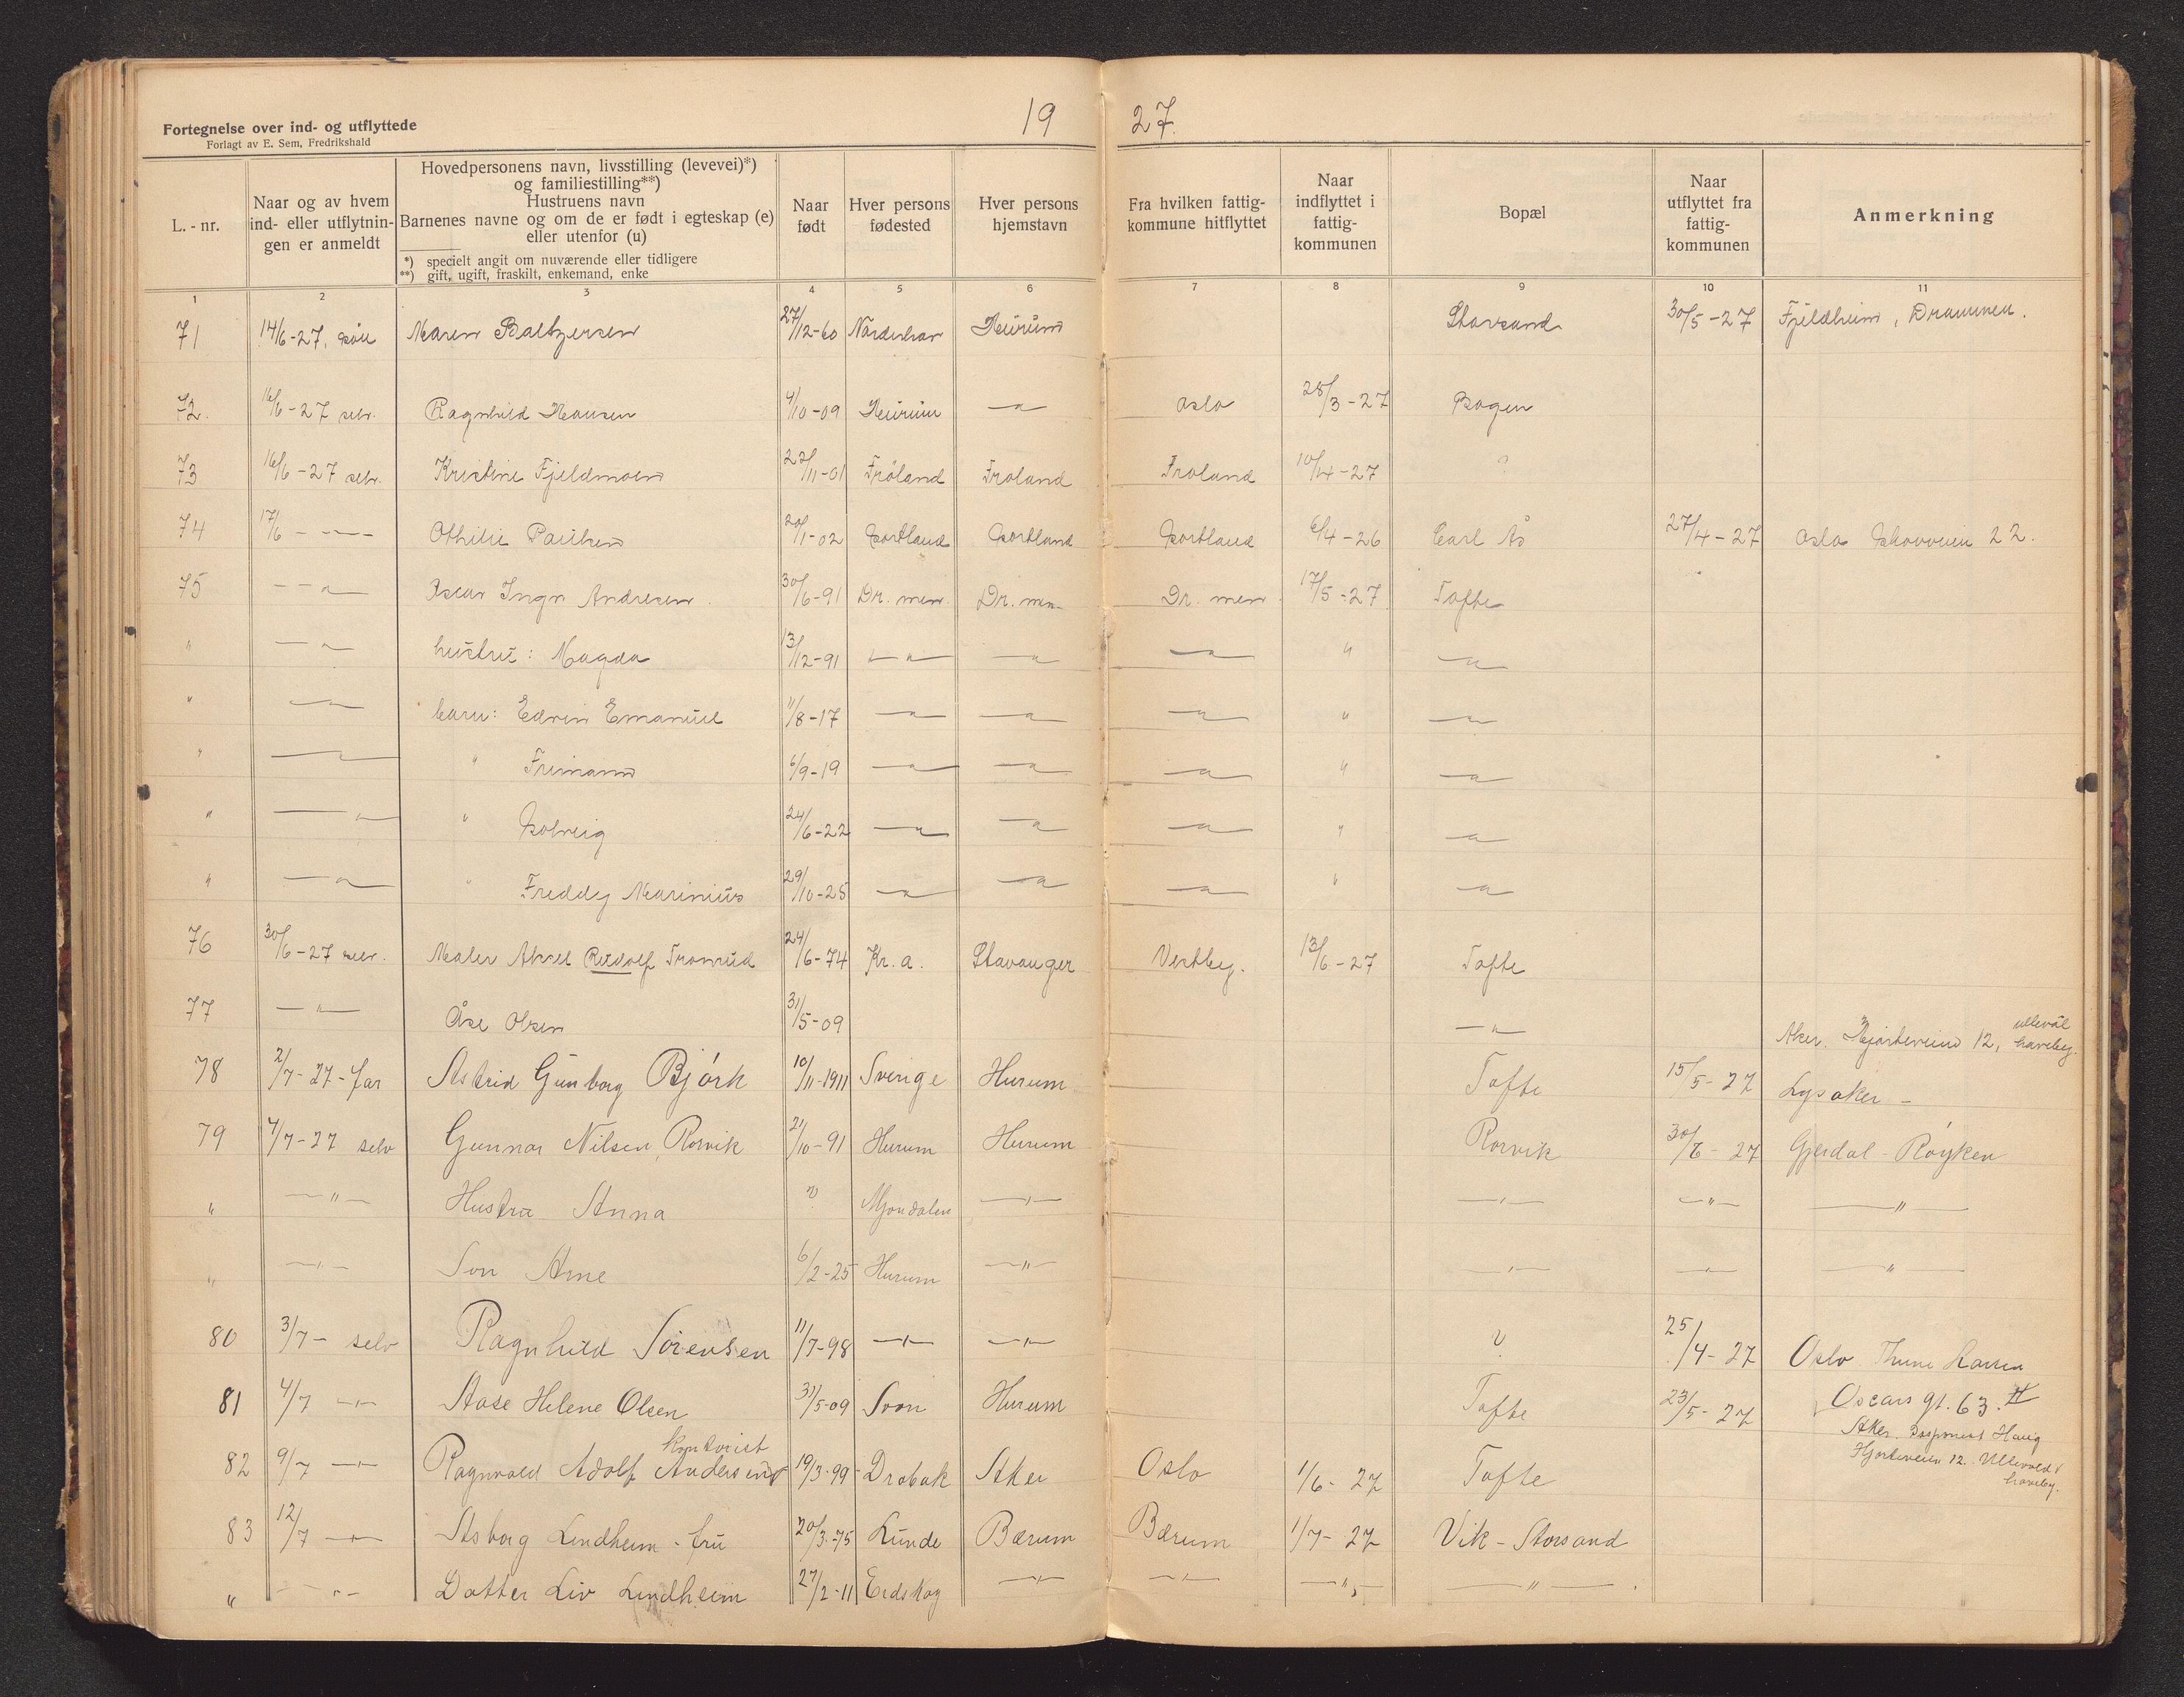 Fortegnelse over ind- og utflyttede
Forlagt av E. Sem, Fredrikshald
19 27.
L. - nr.
Naar og av hvem ind- eller utflytnin- gen er anmeldt
Hovedpersonens navn, livsstilling (levevei)*)
og familiestilling**)
Hustruens navn
Barnenes navne og om de er født i egteskap (e)
eller utenfor (u)
*) specielt angit om nuværende eller tidligere
**) gift, ugift, fraskilt, enkemand, enke
Naar født
Hver persons fødested
Hver persons hjemstavn
Fra hvilken fattig- kommune hitflyttet
Naar indflyttet i fattig- kommunen
Bopæl
Naar utflyttet fra fattig- kommunen
Anmerkning
1 2 3 4 5 6 7 8 9 10 11
71 14/6-27. Maren Baltzersen 27/12-60 Norderhov Hurum Storsand 30/5-27 Fjeldheim, Drammen.
72. 16/6-27 selv. Ragnhild Hansen 4/10-09 Hurum —"— Oslo 28/3-27 Bogen
73 16/6-27 selv. Kristine Fjeldmoen 22/11-01 Froland Froland Froland 10/4-27 ?
74 17/6 - —"— Othilie Paulsen 20/1-02 Sortland Sortland Sortland 6/4-26 Carl Ås 27/4-27 Oslo Skovveien 22.
75 —"— Oscar Ingv Andresen. 30/6-91 Dr. men. Dr. men. Dr. men 17/5-27 Tofte
" —"— hustru: Magda 13/12-91 —"— —"— —"— " —"—
" —"— barn: Edvin Emanuel 11/8-17 —"— —"— —"— " —"—
" —"— " Frimann 6/9-19 —"— —"— —"— " —"—
" —"— " Solveig 24/6-22 —"— —"— —"— " —"—
" —"— " Freddy Marinius 29/10-25 —"— —"— —"— " —"—
76 30/6-27 selv. Maler Aksel Rudolf Tromrud 24/6-74 Kr. a. Stavanger Vestby. 13/6-27 Tofte
77 —"— Åse Olsen 31/5-09 —"— Aker. Hjorteveien 12, ullevål haveby.
78 2/7-27 - far Astrid Gunborg Björk 10/11-1911 Sverige Hurum Tofte 15/5-27 Lysaker -
79 4/7-27 selv Gunnar Nilsen Rorvik 21/10-91 Hurum Hurum Rorvik 30/6-27 Gjerdal - Röyken
" —"— Hustru Anna ? Mjondalen —"— —"— —"— —"—
" —"— Son Arne 6/2-25 Hurum —"— —"— —"— —"—
80 3/7 - selv Ragnhild Sörensen 11/7-98 —"— —"— ? 25/4-27 Oslo Thune Larsen
Oscars gt. 63. II
81 4/7 —"— Aase Helene Olsen 31/5-09 Soon Hurum Tofte 23/5-27 Aker. Haug
Hjorteveien 12. Ullevold haveby.
kontorist
82 9/7 —"— Ragnvald Adolf Andersen 19/3-99 Drobak Aker Oslo 1/6-27 Tofte
83 12/7 —"— Asborg Lindheim - fru 20/3-75 Lunde Bærum Bærum 1/7-27 Vik - Storsand
" —"— Datter Liv Lindheim 27/2-11 Eidskog —"— —"— —"— —"—